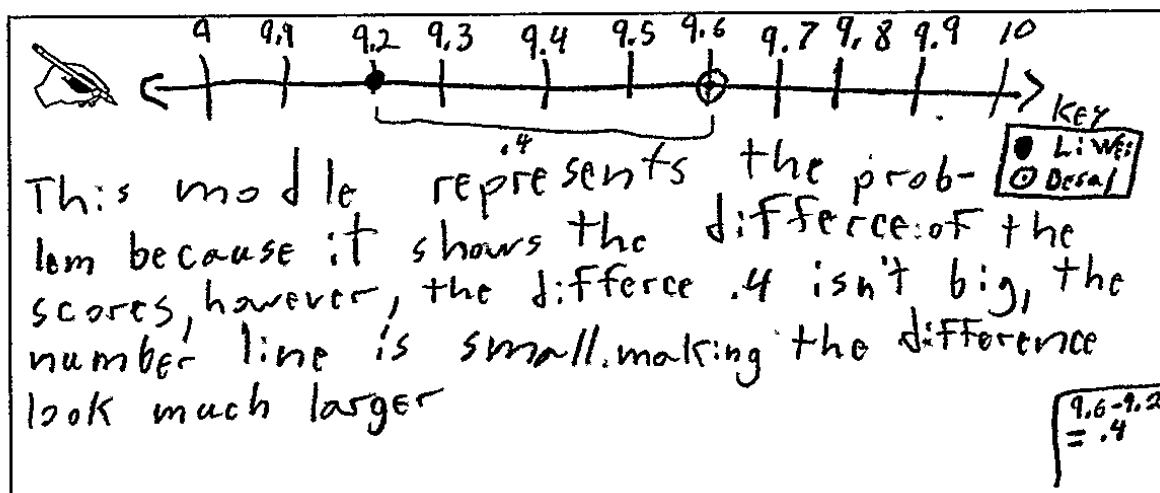 9 9.1 9.2 9.3 9.4 9.5 9.6 9.7 9.8 9.9 10
.4
Key
Li Wei
Desal
This modle represents the prob-
lem because it shows the differce of the
scores, however, the differce .4 isn't big, the
number line is small. making the difference
look much larger
9.6-9.2
= .4